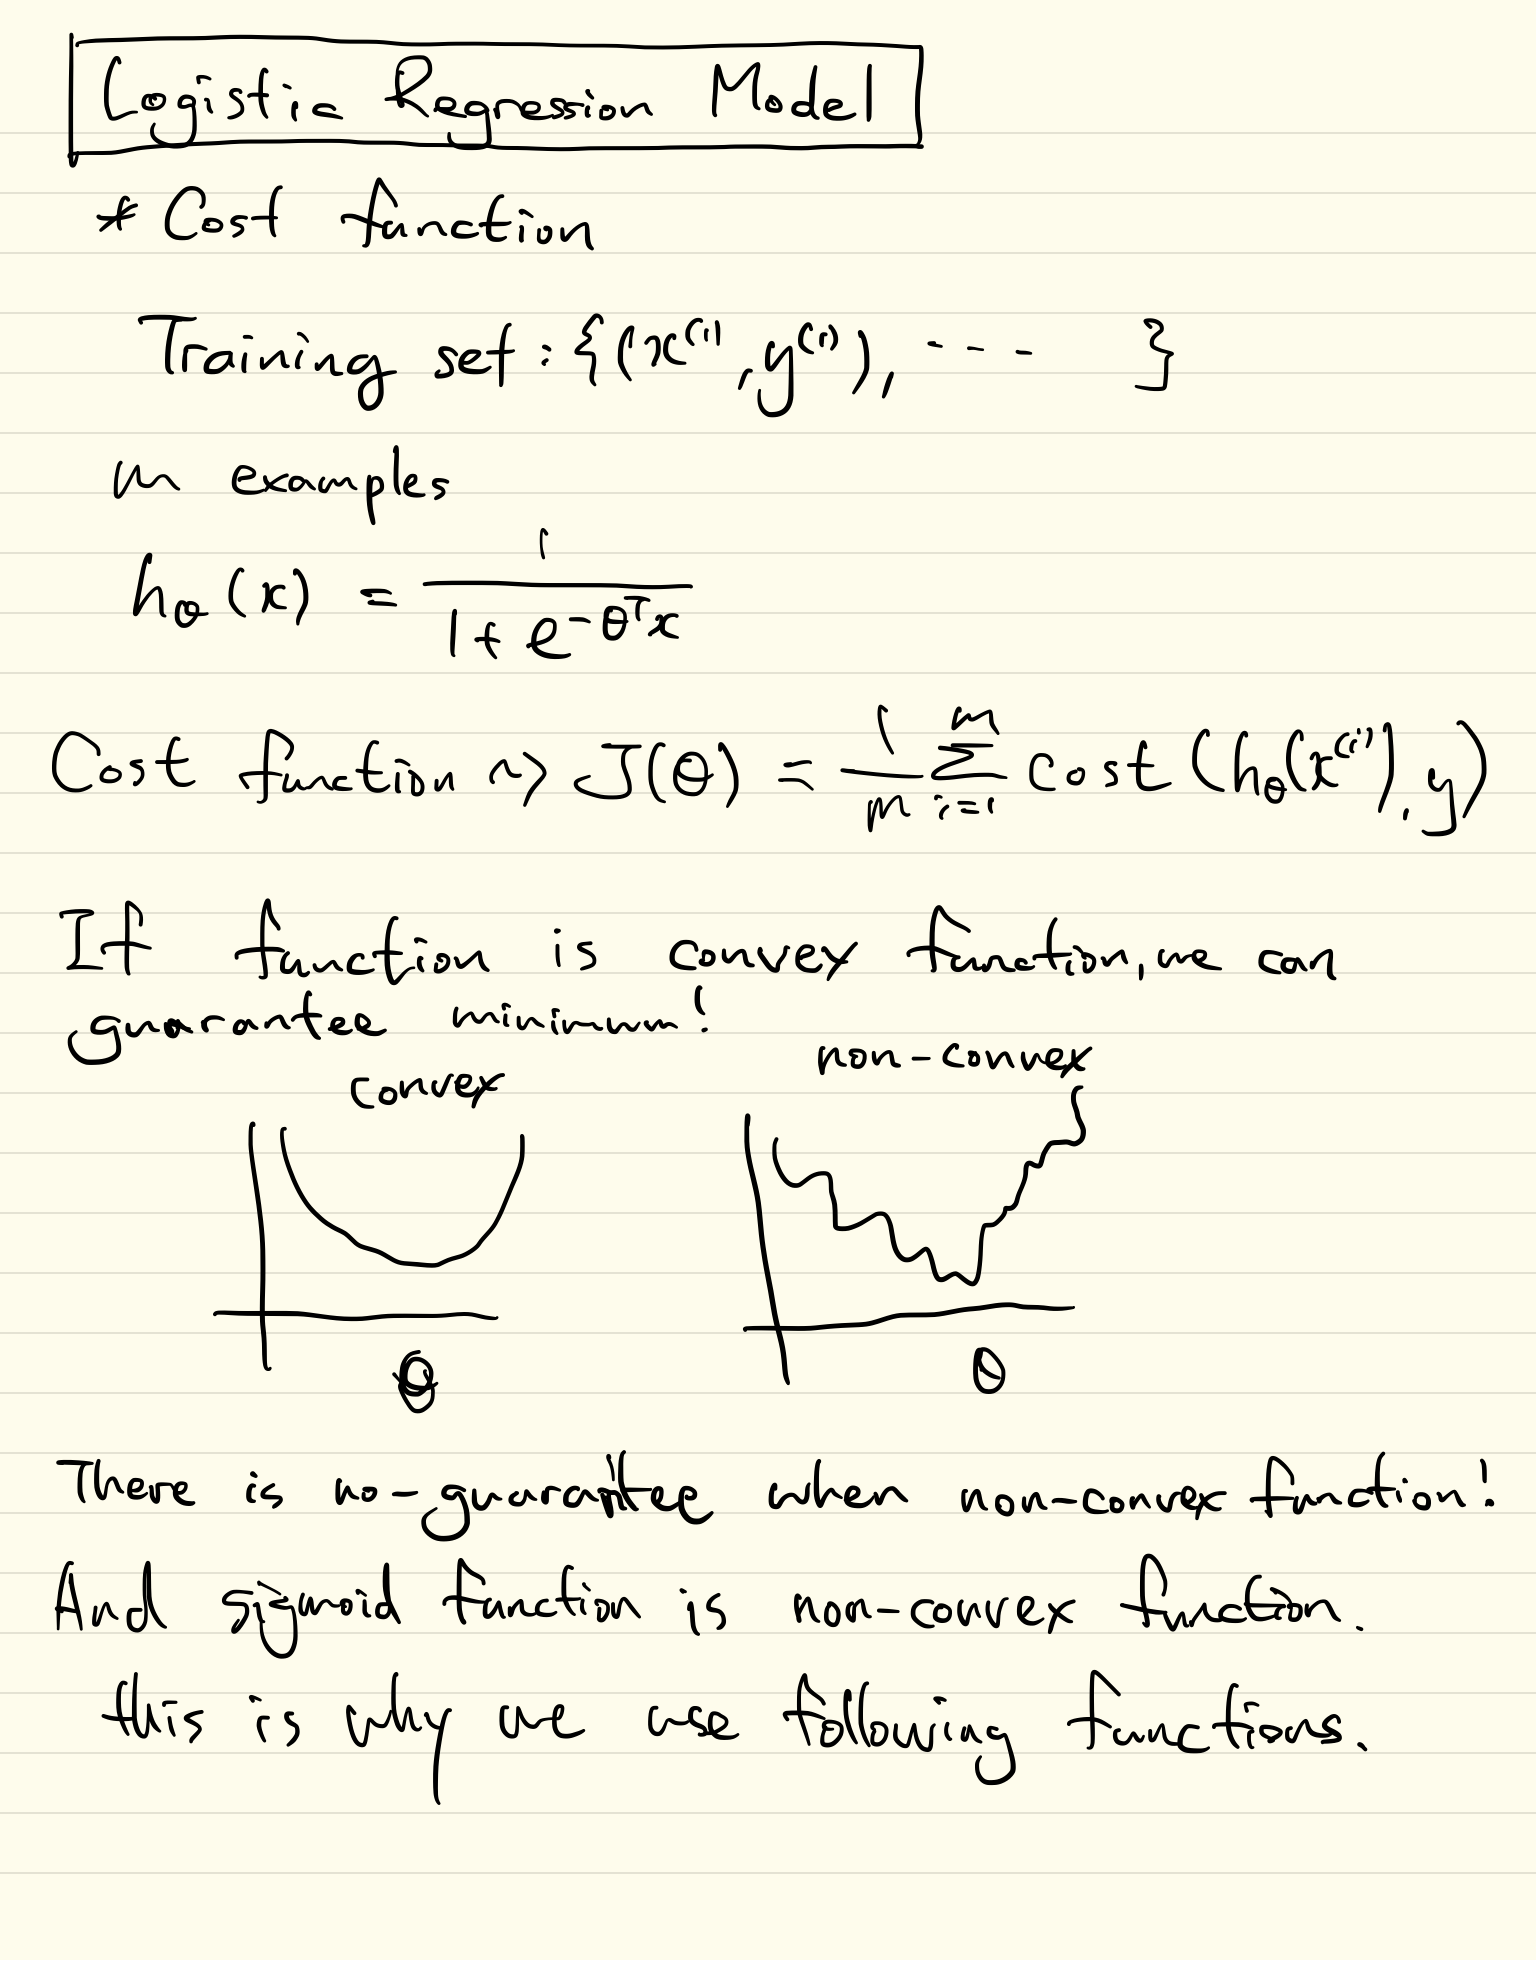 Logistic Regression Model
* Cost function
Training set : {(x⁽¹⁾, y⁽¹⁾), ---- }
m examples
h_θ(x) = 1 / (1 + e^(-θᵀx))
Cost function ~> J(θ) = 1/m Σ_{i=1}^{m} cost (h_θ(x⁽ⁱ⁾), y)
If function is convex function, we can
guarantee minimum!
convex non-convex
θ θ
There is no-guarantee when non-convex function!
And sigmoid function is non-convex function.
this is why we use following functions.